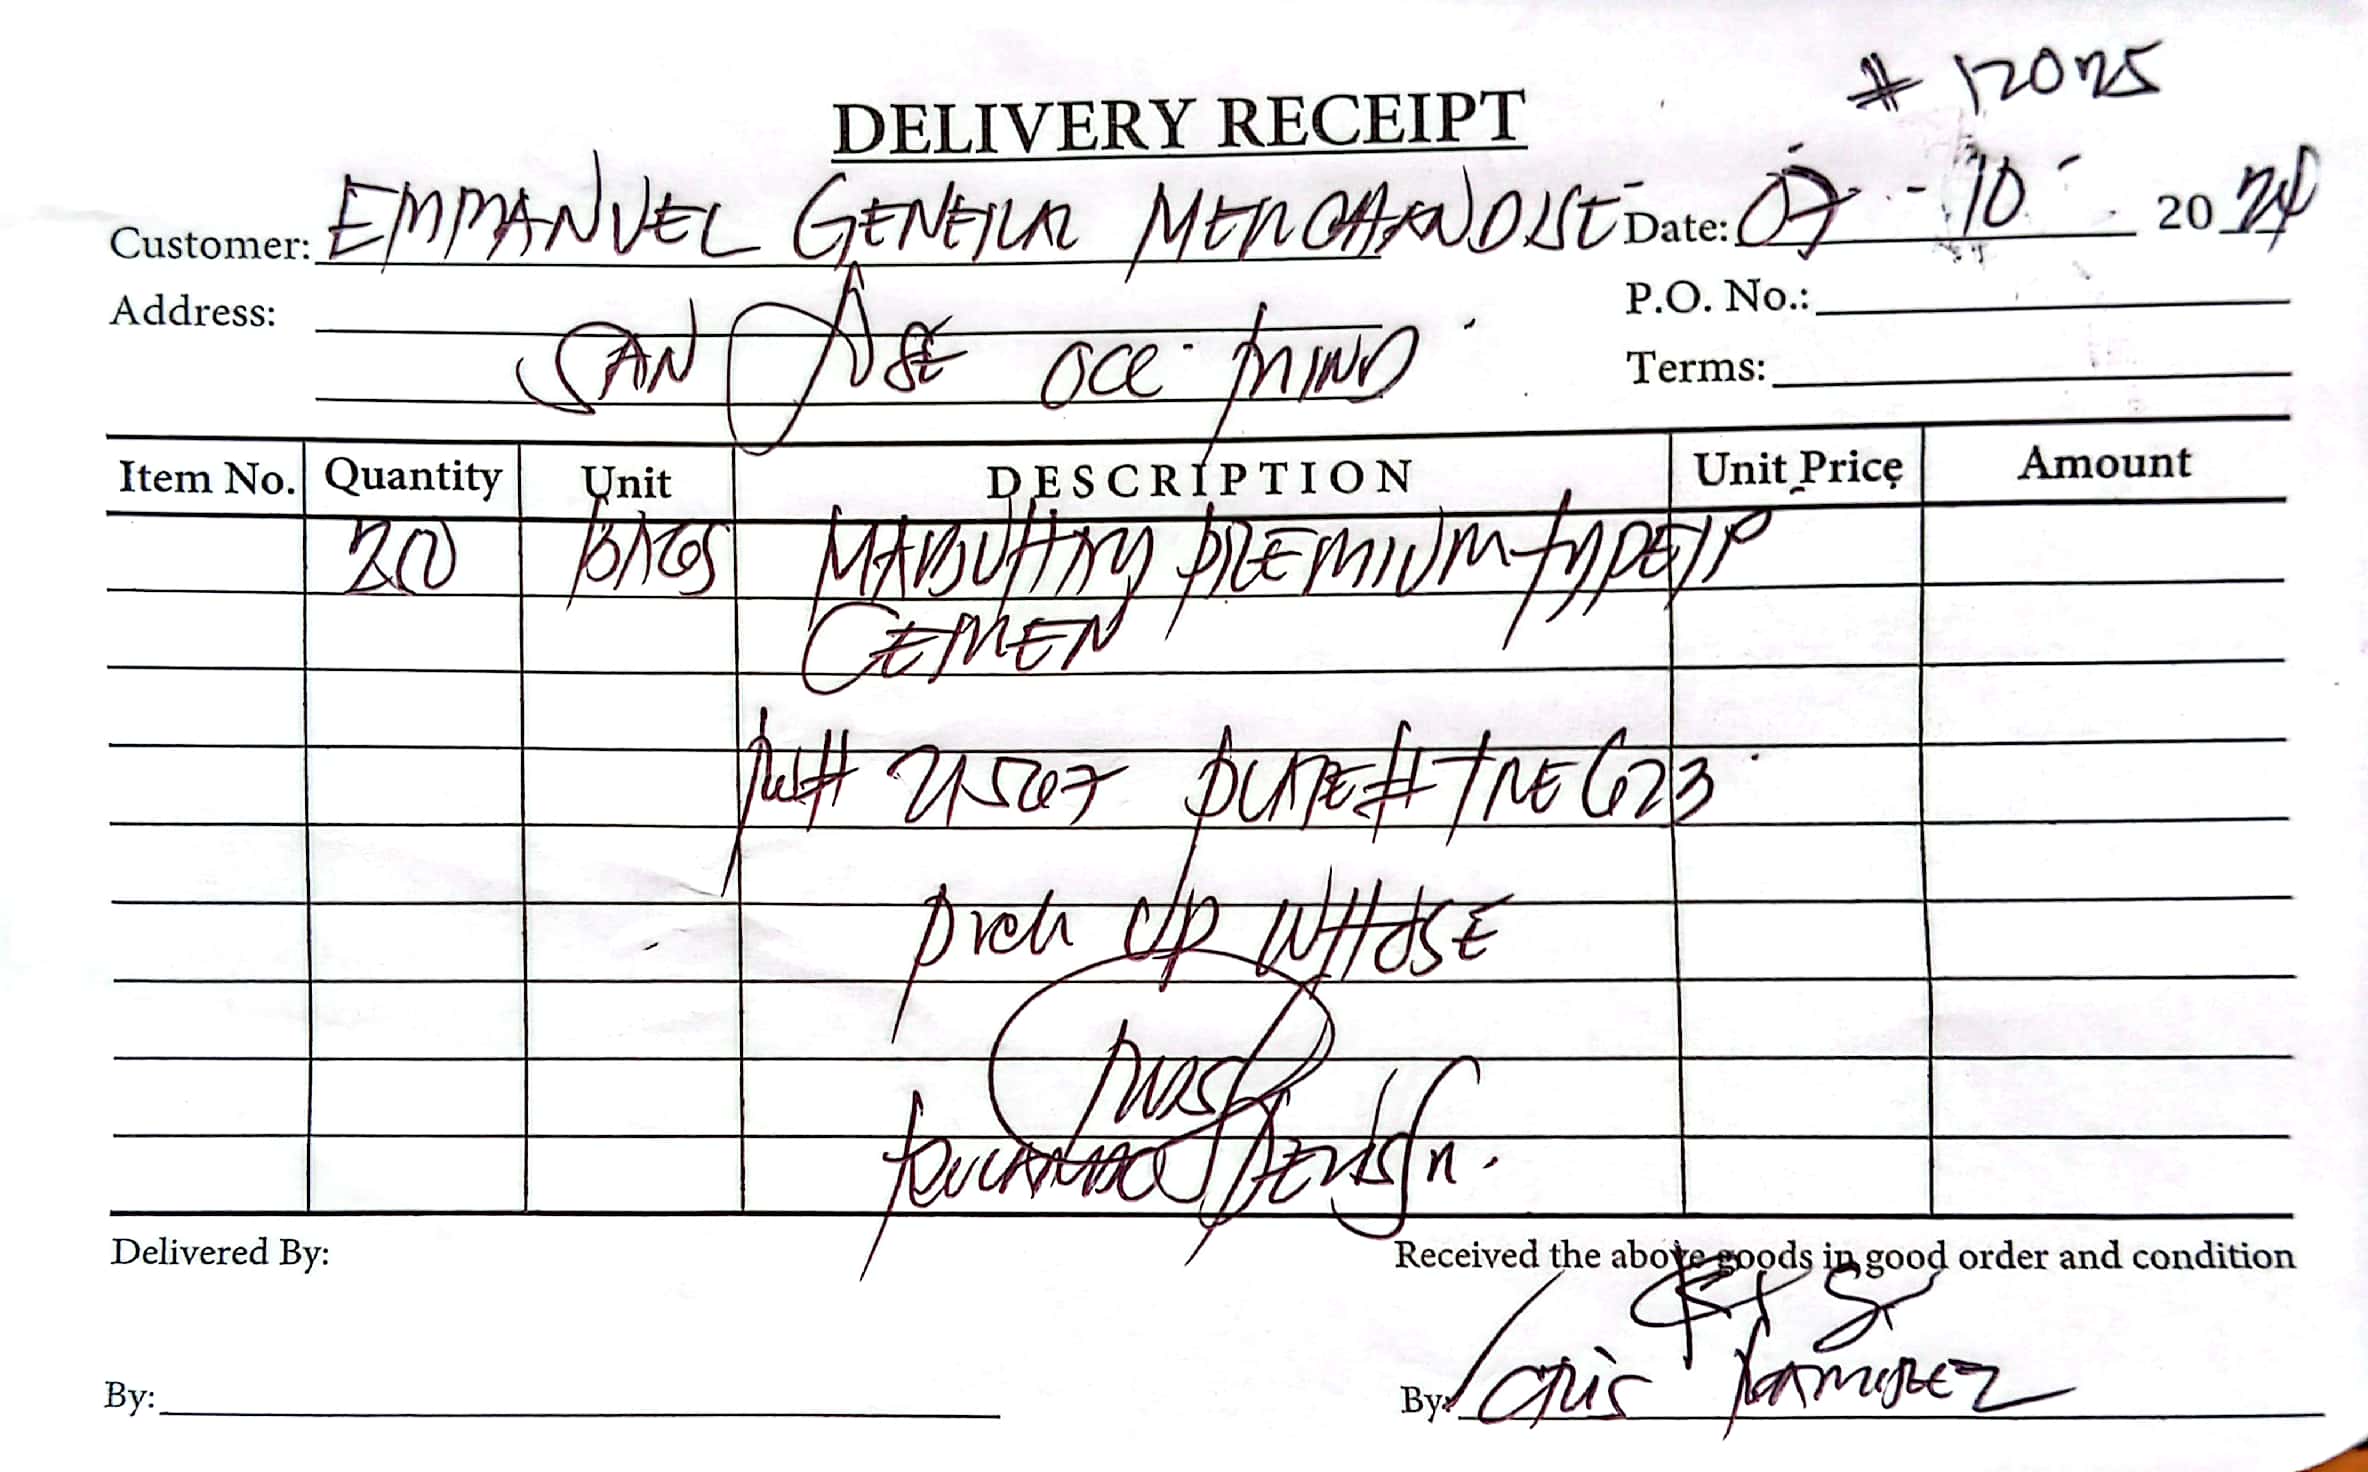 # 12025
DELIVERY RECEIPT
Customer: EMMANUEL GENERAL MERCHANDISE Date: 07 - 10 - 2024
Address: P.O. No.:
SAN JOSE OCC. MIND Terms:
Item No. Quantity Unit DESCRIPTION Unit Price Amount
200 BAGS MABUHAY PREMIUM TYPE 1P
CEMEN
21567 PLATE# TNE 623
PICK UP WHOSE
Delivered By: Received the above goods in good order and condition
By: By: CRIS RAMIREZ